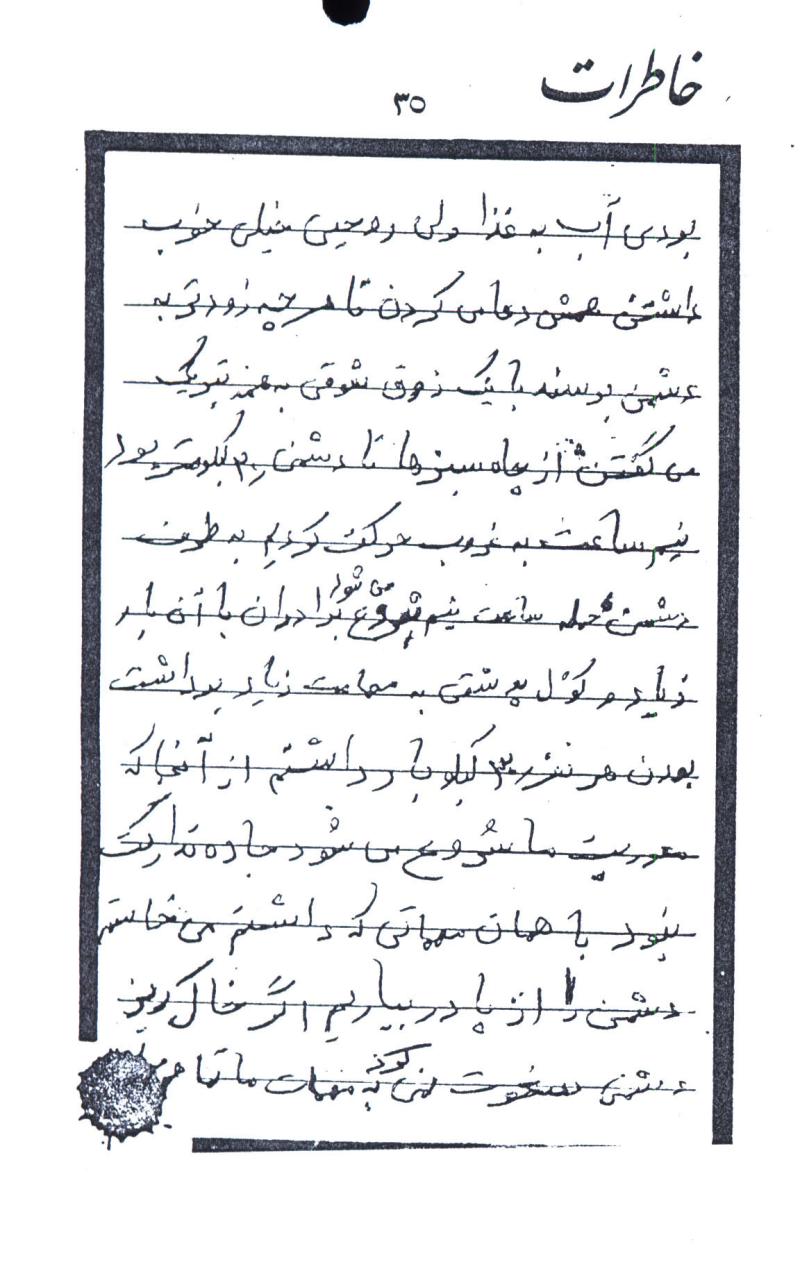 خاطرات
۳۵
بودی آب به غذا ولی روحیی خیلی خوب
داشتن همش دعا می کردن تا هر چه زودتر به
دشمن برسند با یک ذوق شوقی به همه تبریک
می گفتن از چاه سبزها تا دشمن کیلومتر بود
نیم ساعت به غروب حرکت کردیم به طرف
دشمن حمله ساعت نیم شروع می شود برادران با آن بار
زیاد و کول پشتی به مهامت زیاد برداشت
بودن هر نفر ۳۰ کیلو بار داشتم از آنجا که
معوریت ما شروع می شود جاده تدارک
نبود با همان مهماتی که داشتم می خاستم
دشمن را از پا در بیاریم اگر خال ریز
دشمن سغوت نمی کرد که مهمات ما تمام